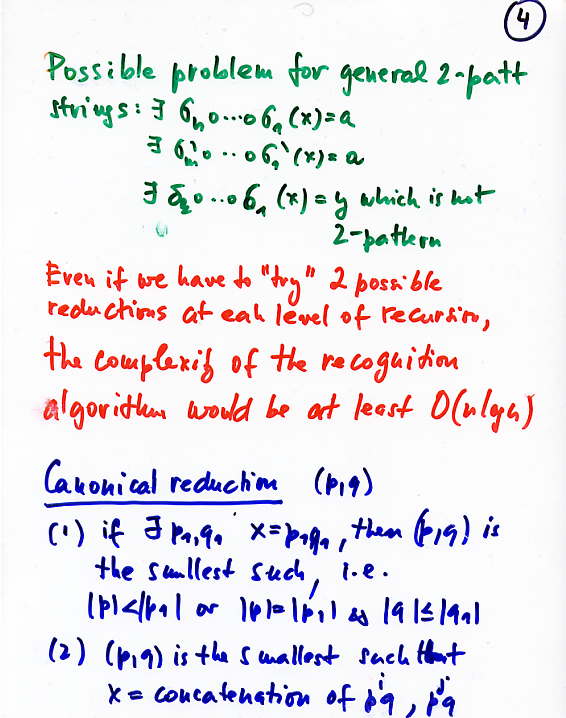 4
Possible problem for general 2-patt
strings: ∃ σₙ∘...∘σ₁(x)=a
∃ σₘ'∘..∘σ₁'(x)=a
∃ δ₂∘..∘σ₁(x)=y which is not
2-pattern
Even if we have to "try" 2 possible
reductions at eah level of recursion,
the complexity of the recognition
algorithm would be at least O(nlogn)
Canonical reduction (p,q)
(1) if ∃ p₁,q₁ x=p₁q₁, then (p,q) is
the smallest such, i.e.
|p|<|p₁| or |p|=|p₁| && |q|≤|q₁|
(2) (p,q) is the smallest such that
x = concatenation of pⁱq, pʲq